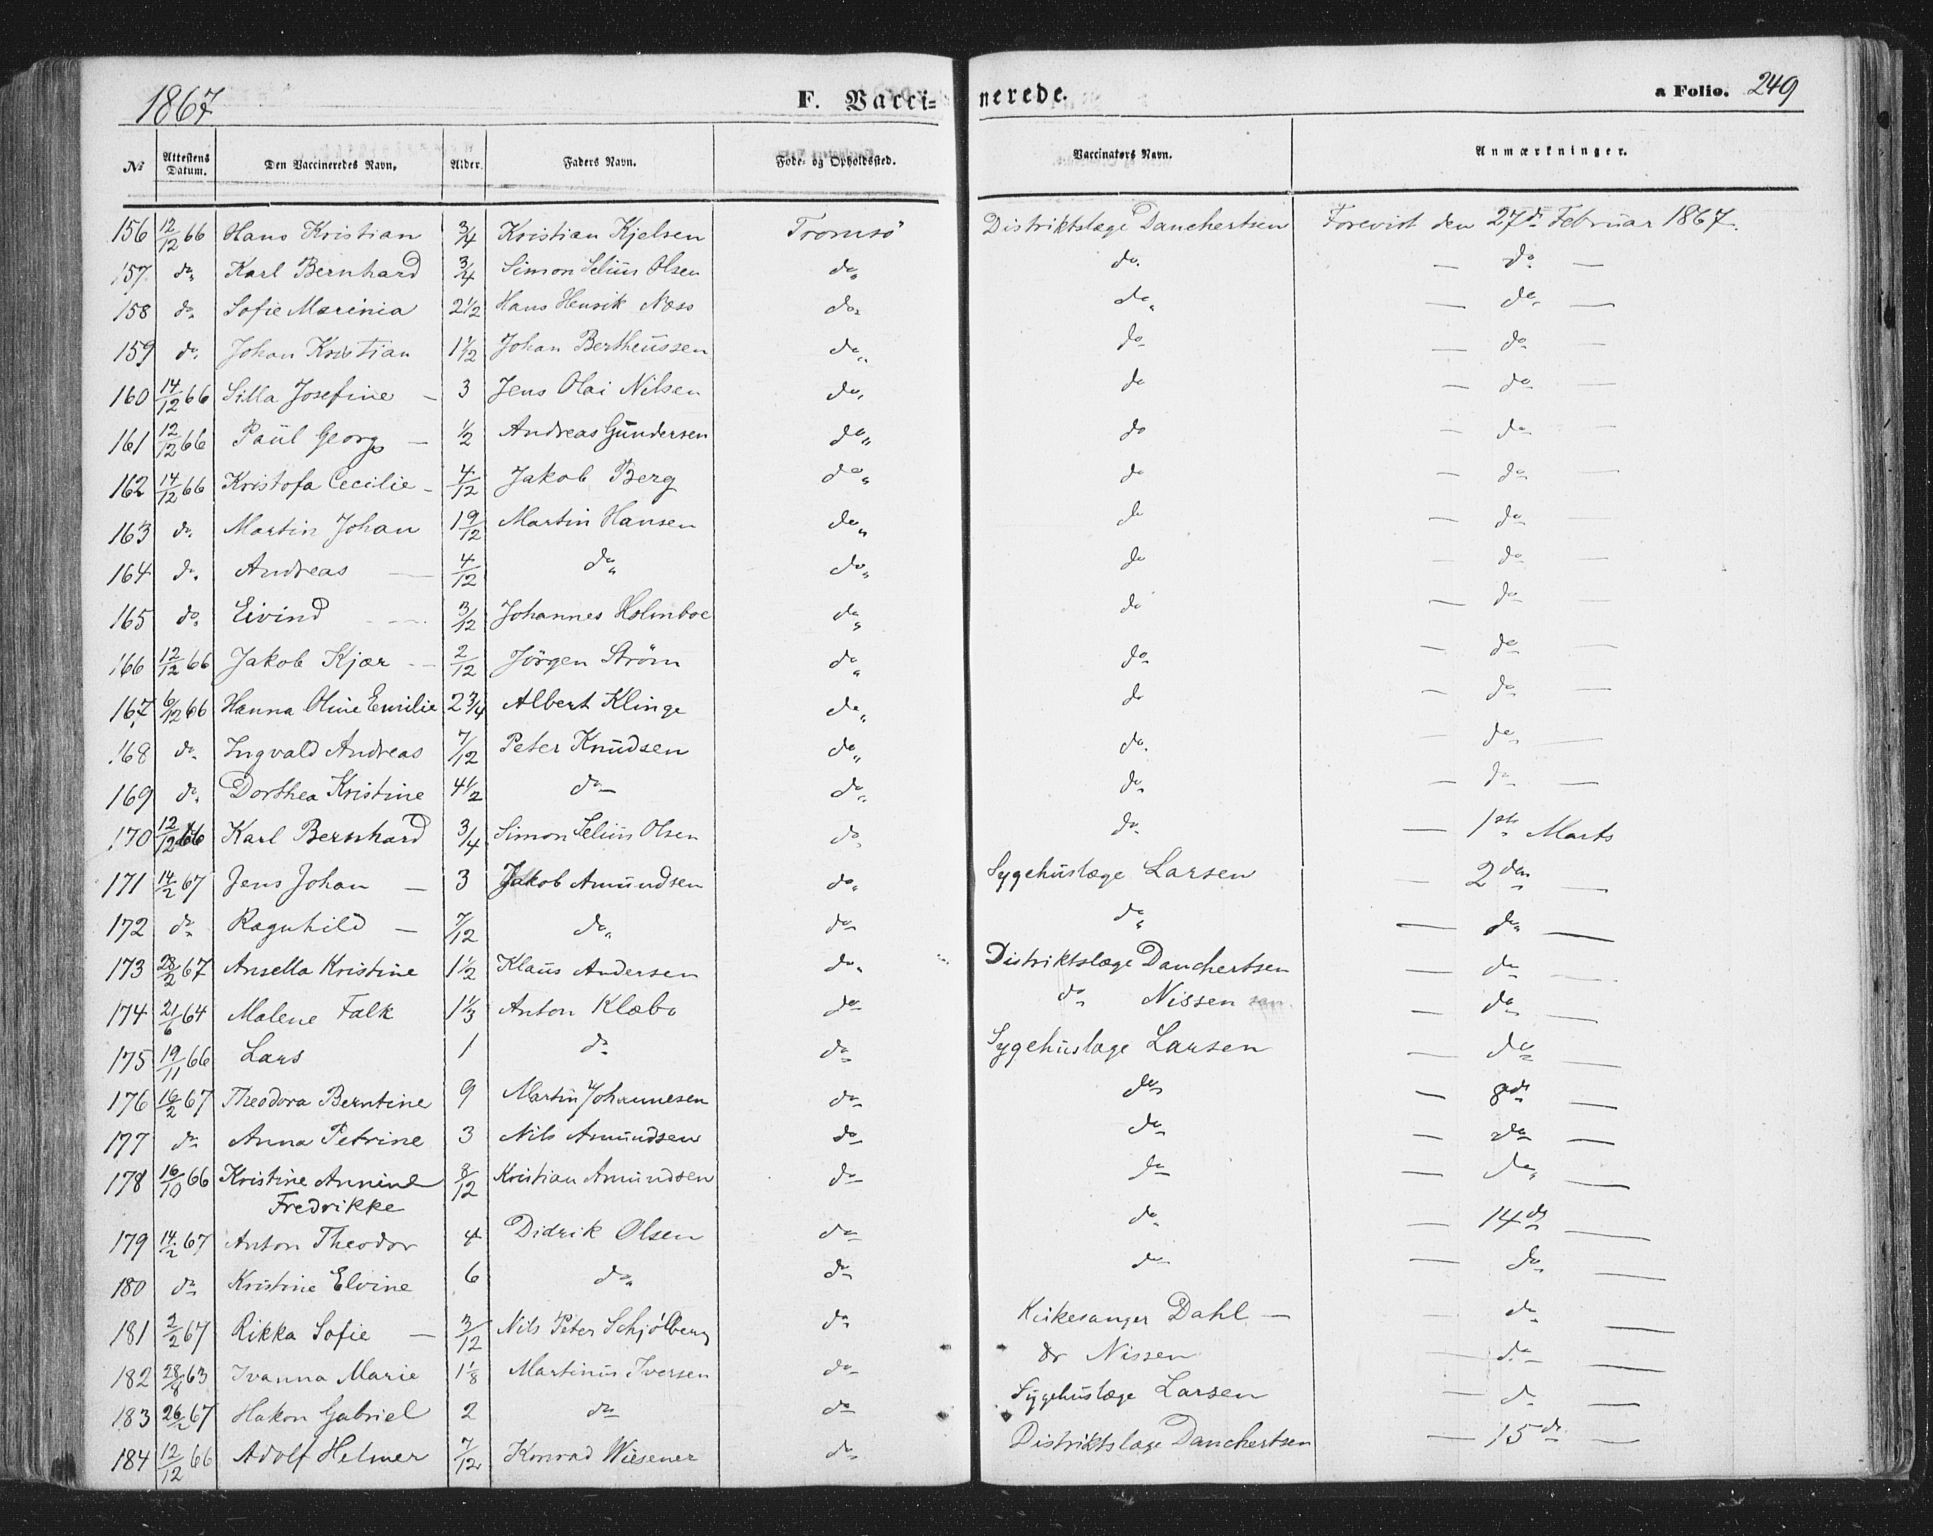 1867 F. Vaccinerede. a Folio. 249
No Attestens Datum. Den Vaccineredes Navn, Alder. Faders Navn. Føde- og Opholdssted. Vaccinators Navn. Anmærkninger.
156 12/12 66 Hans Kristian 3/4 Kristian Kjelsen Tromsö Distriktslæge Danchertsen Forevist den 27de Februar 1867.
157 do Karl Bernhard 3/4 Simon Selius Olsen do do. — do —
158 do Sofie Marinia 2 1/2 Hans Henrik Næss do do — do —
159 do Johan Kristian 1 1/2 Johan Bertheussen do do — do —
160 14/12 66 Silla Josefine — 3 Jens Olai Nilsen do do — do —
161 12/12 66 Paul Georg — 1/2 Andreas Gundersen do do — do —
162 14/12 66 Kristofa Cecilie — 4/12 Jakob Berg do do — do —
163 do Martin Johan 1 9/12 Martin Hansen do do — do —
164 do Andreas — 4/12 do do do — do —
165 do Eivind — 3/12 Johannes Holmboe do do — do —
166 12/12 66 Jakob Kjær — 2/12 Jörgen Strøm do do — do —
167 6/12 66 Hanna Oline Emilie 2 3/4 Albert Klinge do do — do —
168 do Ingvald Andreas 7/12 Peter Knudsen do do — do —
169 do Dorthea Kristine 4 1/2 do do do — do —
170 12/12 66 Karl Bernhard 3/4 Simon Selius Olsen do do — 1ste Marts
171 14/2 67 Jens Johan — 3 Jakob Amundsen do Sygehuslæge Larsen — 2den —
172 do Ragnhild — 7/12 do do do — do —
173 28/2 67 Ansella Kristine 1 1/2 Klaus Andersen do Distriktslæge Danchertsen — do —
174 21/6 64 Malene Falk 1 1/3 Anton Klæbo do do Nissen sen. — do —
175 19/11 66 Lars 1 do do Sygehuslæge Larsen — do —
176 16/2 67 Theodora Berntine 9 Martin Johannesen do do — 8de —
177 do Anna Petrine 3 Nils Amundsen do do — do —
178 16/10 66 Kristine Annine Fredrikke 8/12 Kristian Amundsen do do — do —
179 14/2 67 Anton Theodor 4 Didrik Olsen do do — 14de —
180 do Kristine Elvine 6 do do do — do —
181 2/2 67 Rikka Sofie — 3/12 Nils Peter Schjølberg do Kirkesanger Dahl — — do —
182 28/8 63 Ivanna Marie 1 1/8 Martinus Iversen do dr Nissen — do —
183 26/2 67 Hakon Gabriel 2 do do Sygehuslæge Larsen — do —
184 12/12 66 Adolf Helmer 7/12 Konrad Wiesener do Distriktslæge Danchertsen — 15de —